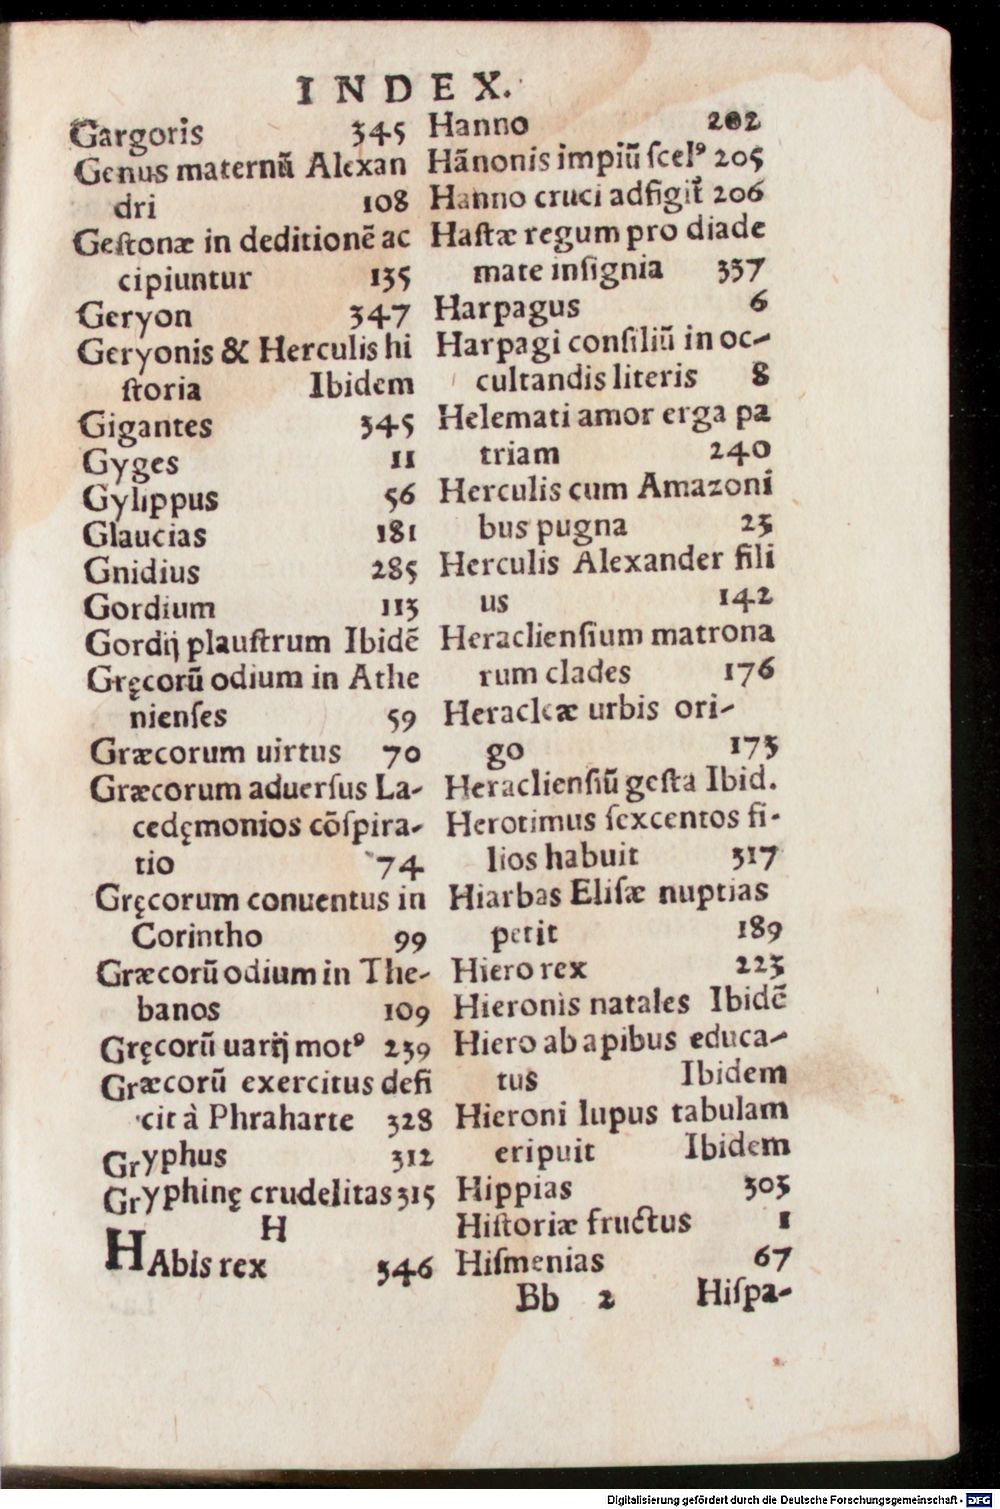 INDEX.
Gargoris 345
Genus maternũ Alexan
dri 108
Geſtonæ in deditionẽ ac
cipiuntur 135
Geryon 347
Geryonis & Herculis hi
ſtoria Ibidem
Gigantes 345
Gyges 11
Gylippus 56
Glaucias 181
Gnidius 285
Gordium 113
Gordij plauſtrum Ibidẽ
Gręcorũ odium in Athe
nienſes 59
Græcorum uirtus 70
Græcorum aduerſus La-
cedęmonios cõſpira-
tio 74
Gręcorum conuentus in
Corintho 99
Græcorũ odium in The-
banos 109
Gręcorũ uarij motꝰ 239
Græcorũ exercitus defi
cit à Phraharte 328
Gryphus 312
Gryphinę crudelitas 315
H
HAbis rex 346
Hanno 202
Hãnonis impiũ ſcelꝰ 205
Hanno cruci adfigit̃ 206
Haſtæ regum pro diade
mate inſignia 337
Harpagus 6
Harpagi conſiliũ in oc-
cultandis literis 8
Helemati amor erga pa
triam 240
Herculis cum Amazoni
bus pugna 23
Herculis Alexander fili
us 142
Heraclienſium matrona
rum clades 176
Heracleæ urbis ori-
go 173
Heraclienſiũ geſta Ibid.
Herotimus ſexcentos fi-
lios habuit 317
Hiarbas Eliſæ nuptias
petit 189
Hiero rex 223
Hieronis natales Ibidẽ
Hiero ab apibus educa-
tus Ibidem
Hieroni lupus tabulam
eripuit Ibidem
Hippias 303
Hiſtoriæ fructus 1
Hiſmenias 67
Bb 2 Hiſpa-
Digitalisierung gefördert durch die Deutsche Forschungsgemeinschaft - DFG